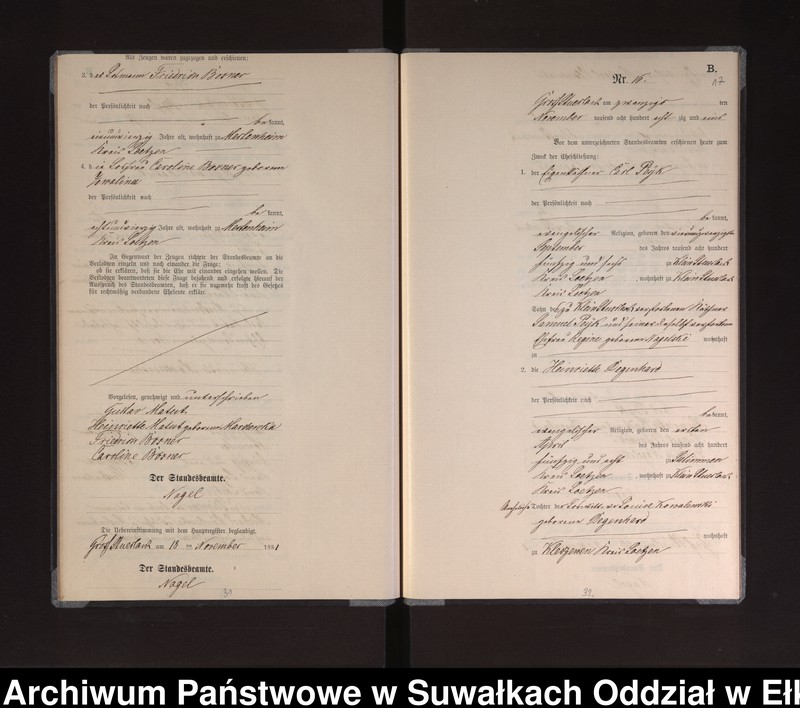 Als Zeugen waren zugezogen und erschienen:
3. d er Losmann Friedrich Bosner
der Persönlichkeit nach
be kannt,
Jahre alt, wohnhaft zu Mertenheim
Kreis Loetzen
4. d ie Losfrau Caroline Bosner geborene
der Persönlichkeit nach
be kannt,
achtundvierzig Jahre alt, wohnhaft zu Mertenheim
Kreis Loetzen
In Gegenwart der Zeugen richtete der Standesbeamte an die
Verlobten einzeln und nach einander die Frage:
ob sie erklären, daß sie die Ehe mit einander eingehen wollen. Die
Verlobten beantworteten diese Frage bejahend und erfolgte hierauf der
Ausspruch des Standesbeamten, daß er sie nunmehr kraft des Gesetzes
für rechtmäßig verbundene Eheleute erkläre.
Vorgelesen, genehmigt und unterschrieben
Gustav Mateut
Heinriette Mateut geborene
Friedrich Bosner
Caroline Bosner
Der Standesbeamte.
Nagel
Die Uebereinstimmung mit dem Hauptregister beglaubigt.
Groß Stuerlack am 18 ten November 1881
Der Standesbeamte.
Nagel
31
B.
Nr. 16.
17
Groß Stuerlack am zwanzig den
November tausend acht hundert acht zig und eins
Vor dem unterzeichneten Standesbeamten erschienen heute zum
Zweck der Eheschließung:
1. der Eigenkäthner Carl Pöÿk
der Persönlichkeit nach
be kannt,
evangelischer Religion, geboren den
September des Jahres tausend acht hundert
fünfzig und sechs zu Klein Stuerlack
Kreis Loetzen, wohnhaft zu Klein Stuerlack
Kreis Loetzen
Sohn des zu Klein Stuerlack verstorbenen Käthner
Samuel Pöÿk und seiner daselbst verstorbenen
Ehefrau Regine geborene Nagelski wohnhaft
zu
2. die Heinriette Degenhard
der Persönlichkeit nach
be kannt,
evangelischer Religion, geboren den ersten
April des Jahres tausend acht hundert
fünfzig und acht zu
Kreis Loetzen, wohnhaft zu Klein Stuerlack
Kreis Loetzen
Tochter der Louise Kowalewski
geborene Degenhard
wohnhaft
zu Kleszewen Kreis Loetzen
32
Archiwum Państwowe w Suwałkach Oddział w Ełk